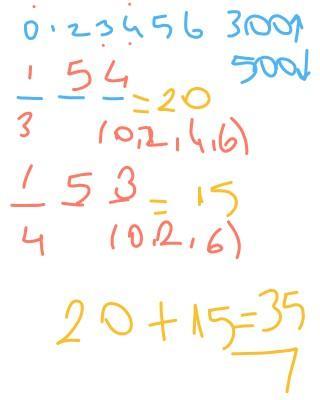 0 1 2 3 4 5 6 300↑
500↓
1 5 4 = 20
3 (0,2,4,6)
1 5 3 = 15
4 (0,2,6)
20+15=35
7